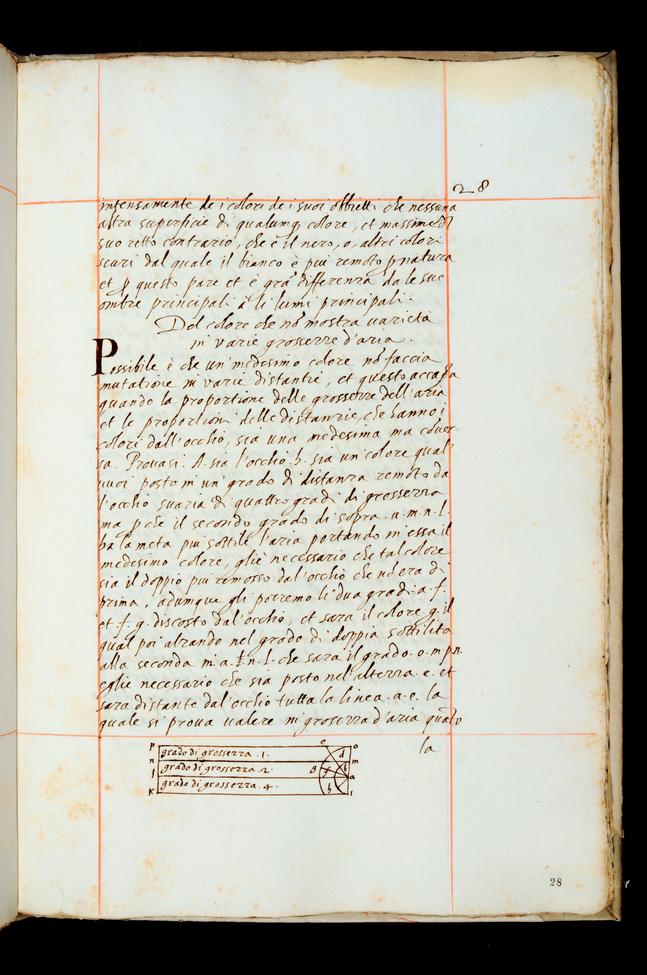 28
intensamente de i colori de i suoi obbietti che nessuna
altra superficie di qualunq; colore, et massime dl
suo retto contrario, che è il nero, o, altri colori
scuri dal quale il bianco è piu remoto p natura
et p questo pare et è grã differenza da le sue
ombre principali à li lumi principali.
Del colore che nõ mostra varietà
in varie grosserre d'aria.
Possibile è che un medesimo colore nõ faccia
mutatione in varie distantie, et questo accada
quando la proportione delle grosserre dell'aria
et le proportioni delle distanzie, che hanno i
colori dall'occhio, sia una medesima ma cõuer
sa. Prouasi. A. sia l'occhio. h. sia un colore qual
uuoi posto in un grado di distanza remoto da
l'occhio in aria di quattro gradi di grosserra
ma p che il secondo grado di sopra .a.m.n.l.
ha la metà piu sottile l'aria portando in essa il
medesimo colore, gliè necessario che tal colore
sia il doppio piu remosso dal'occhio che nõ era di
prima, adumque gli porremo li dua gradi .a.f.
et .f.g. discosto dal'occhio, et sara il colore .g. il
qual poi alzando nel grado di doppia sottilità
alla seconda in .a. m.n.l. che sara il grado .o.m.p.n.
eglie necessario che sia posto nel'alterra .e. et
sara distante dal'occhio tutta la linea .a.e. la
quale si proua ualere in grosserra d'aria quãto
la
p e o
grado di grosserra .1. d
n m
grado di grosserra .2. g f b
l a
grado di grosserra .4. h
k i
28